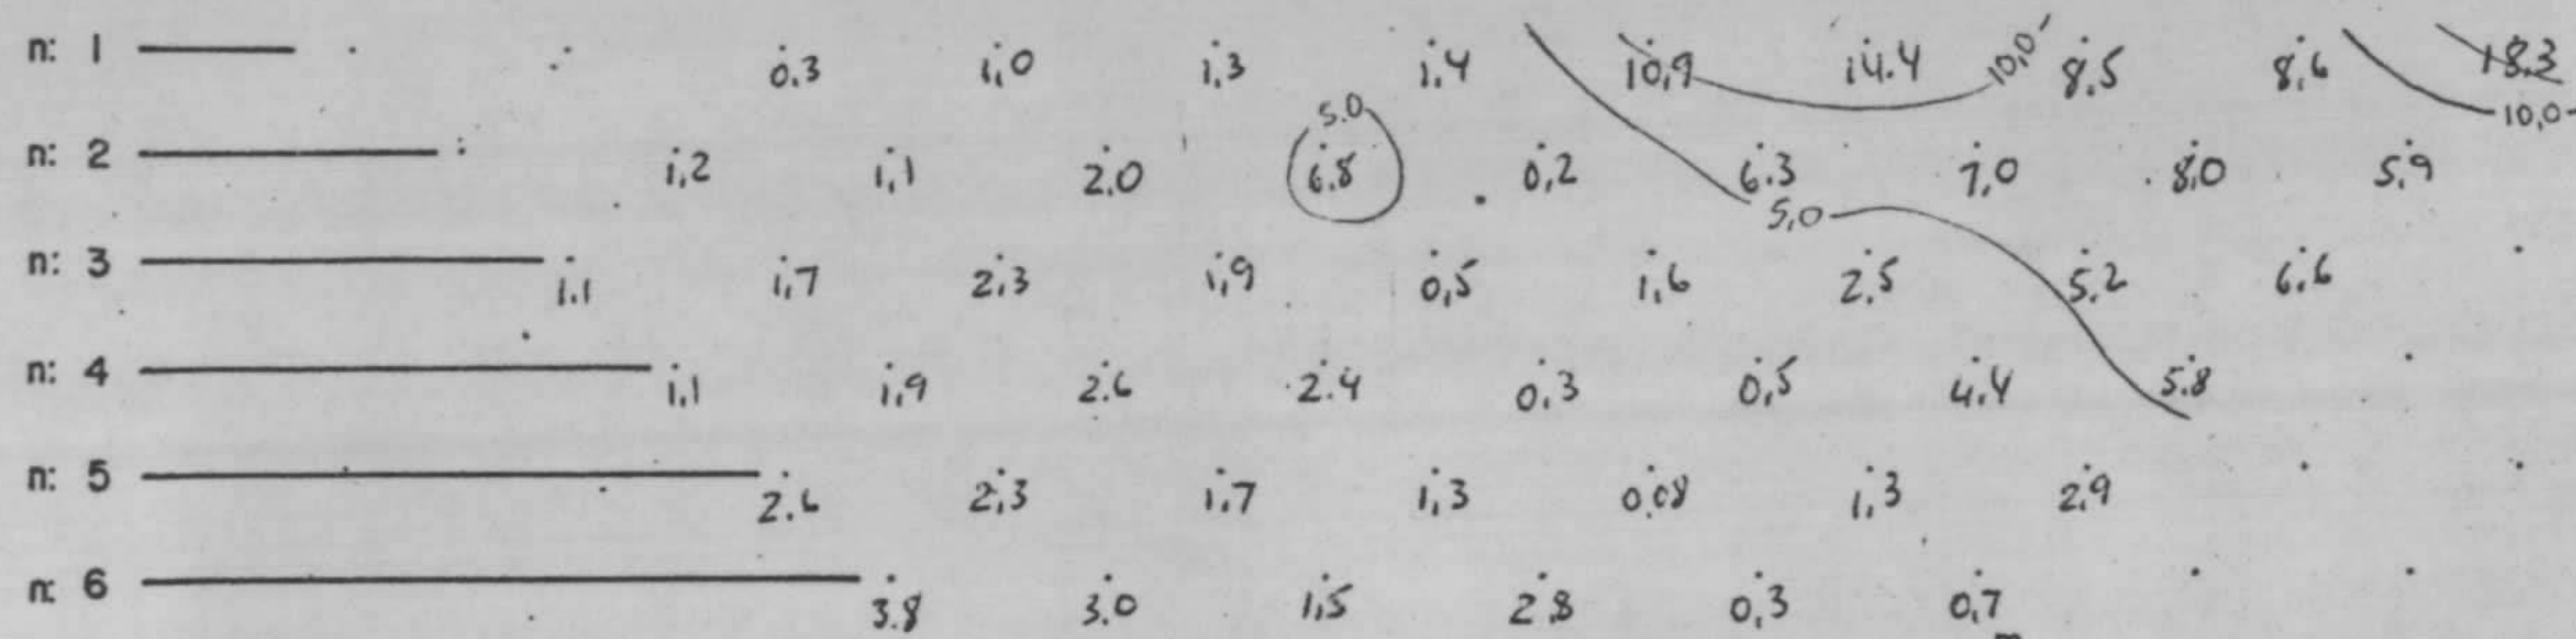 n: 1 0.3 1.0 1.3 1.4 10.9 14.4 10.0 8.5 8.6 18.3
5.0 10.0
n: 2 1.2 1.1 2.0 6.8 0.2 6.3 7.0 8.0 5.9
5.0
n: 3 1.1 1.7 2.3 1.9 0.5 1.6 2.5 5.2 6.6
n: 4 1.1 1.9 2.6 2.4 0.3 0.5 4.4 5.8
n: 5 2.6 2.3 1.7 1.3 0.08 1.3 2.9
n: 6 3.8 3.0 1.5 2.8 0.3 0.7